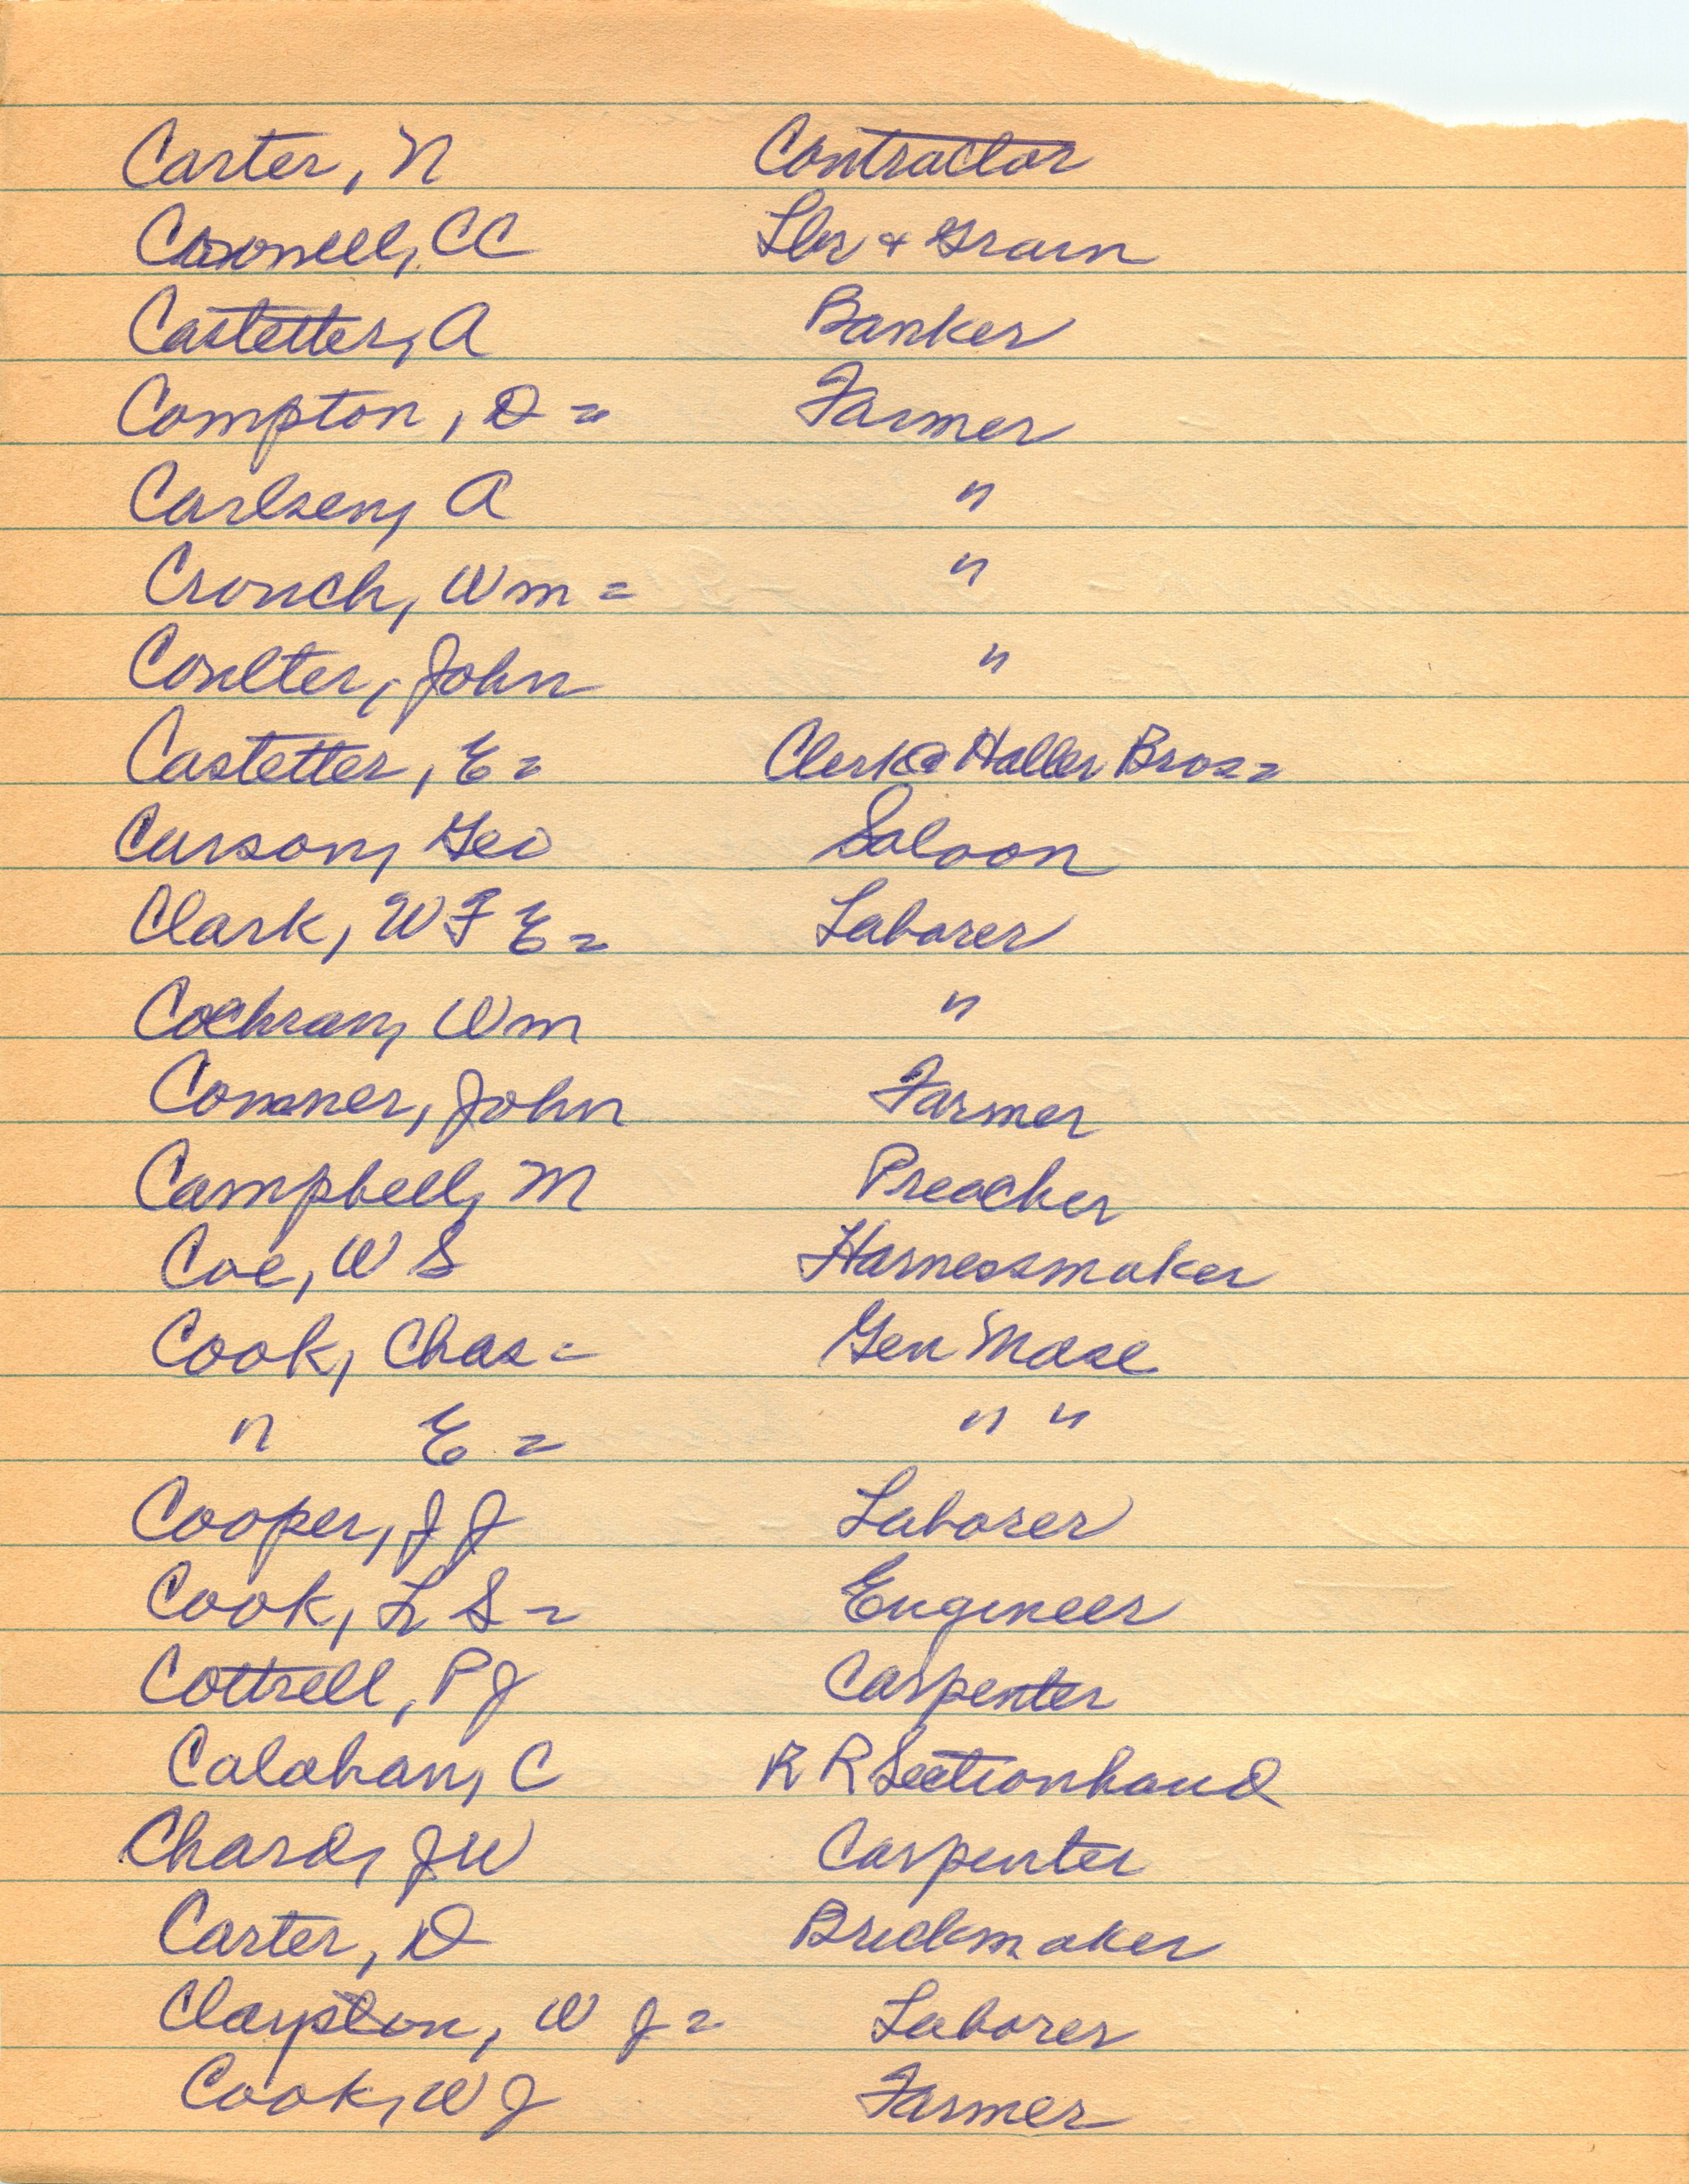 Carter, N Contractor
CC Lbr & Grain
Castetter, A Banker
Compton, D = Farmer
Carlsen, A "
Crouch, Wm = "
Coulter, John "
Castetter, E = Clerk @ Haller Bros =
Curson, Geo Saloon
Clark, W F E = Laborer
Cochran, Wm "
Conner, John Farmer
Campbell, M Preacher
Coe, W S Harnessmaker
Cook, Chas = Gen Mdse
" E = " "
Cooper, J J Laborer
Cook, L S = Engineer
Cottrell, P J Carpenter
Calahan, C R R Sectionhand
Chard, J W Carpenter
Carter, D Brickmaker
W J = Laborer
Cook, W J Farmer